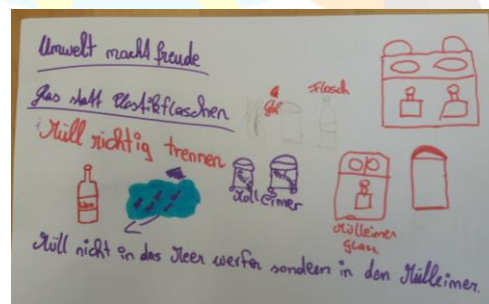 Umwelt macht freude
glas statt Plastikflaschen
glas
flasch
Müll richtig trennen
Mülleimer
Mülleimer
Glass
Müll nicht in das Meer werfen sondern in den Mülleimer.